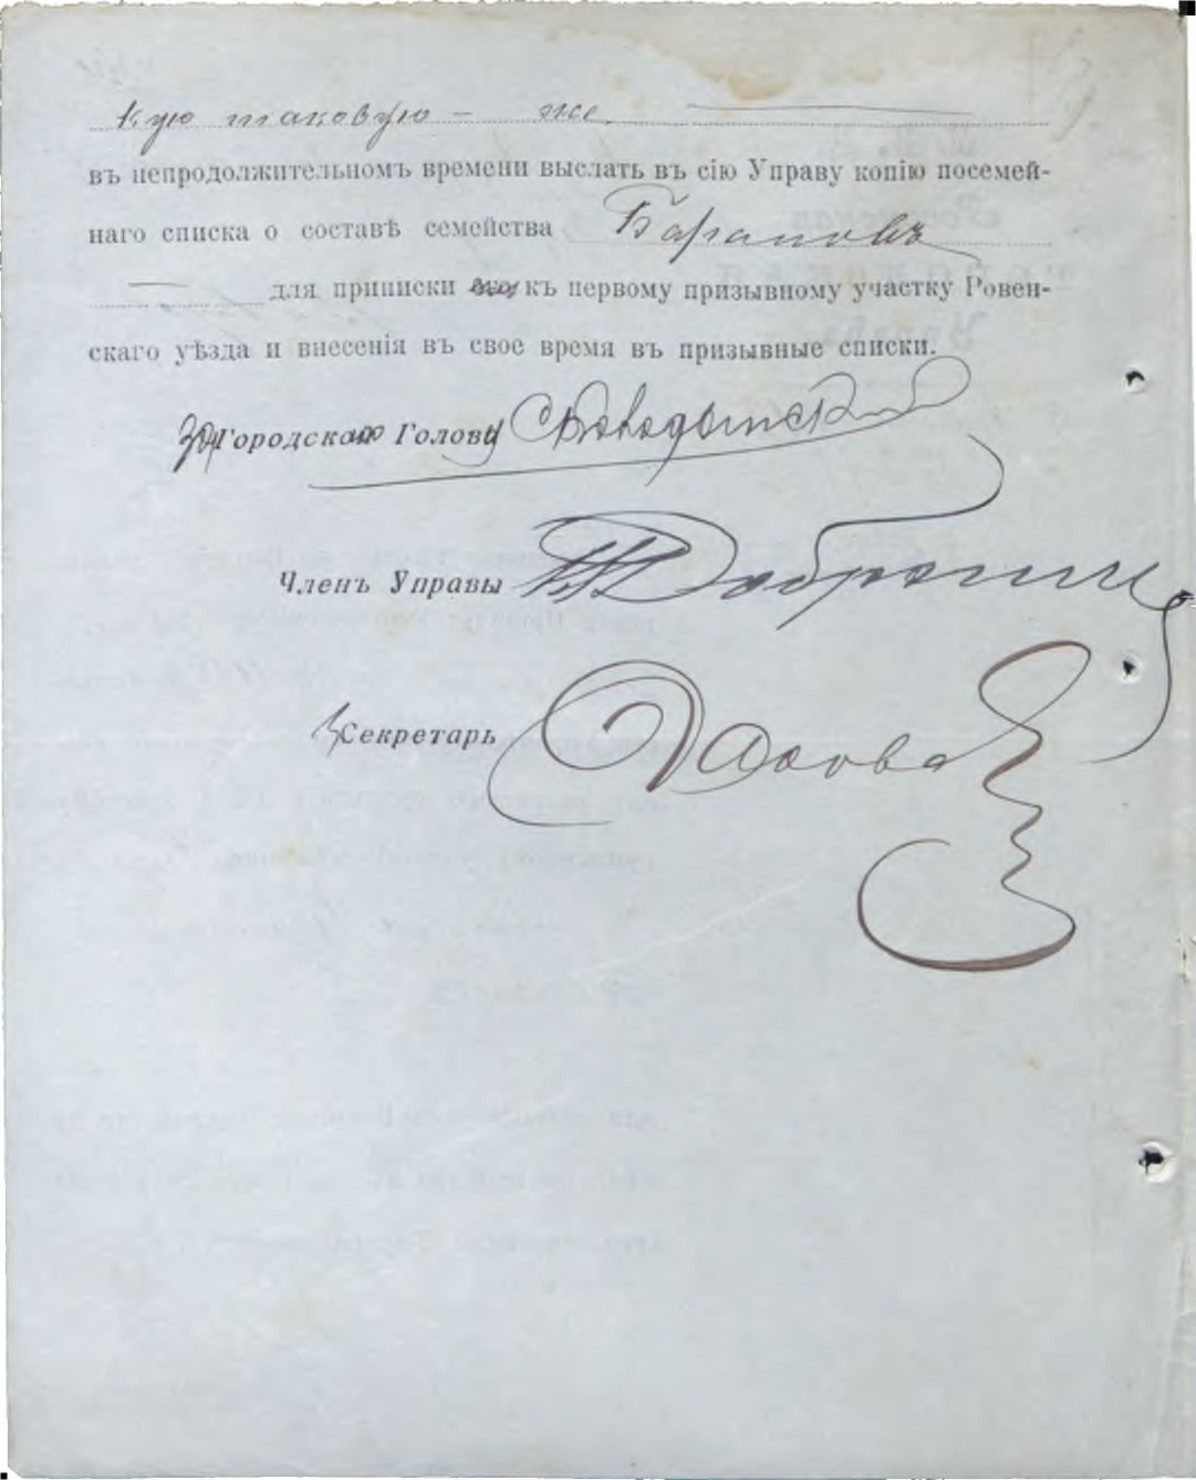 кую таковую – же
въ непродолжительномъ времени выслать въ сію Управу копію посемей-
наго списка о составѣ семейства Барановъ
— для приписки къ первому призывному участку Ровен-
скаго уѣзда и внесенія въ свое время въ призывные списки.
За Городскаго Голову
Членъ Управы
Секретарь